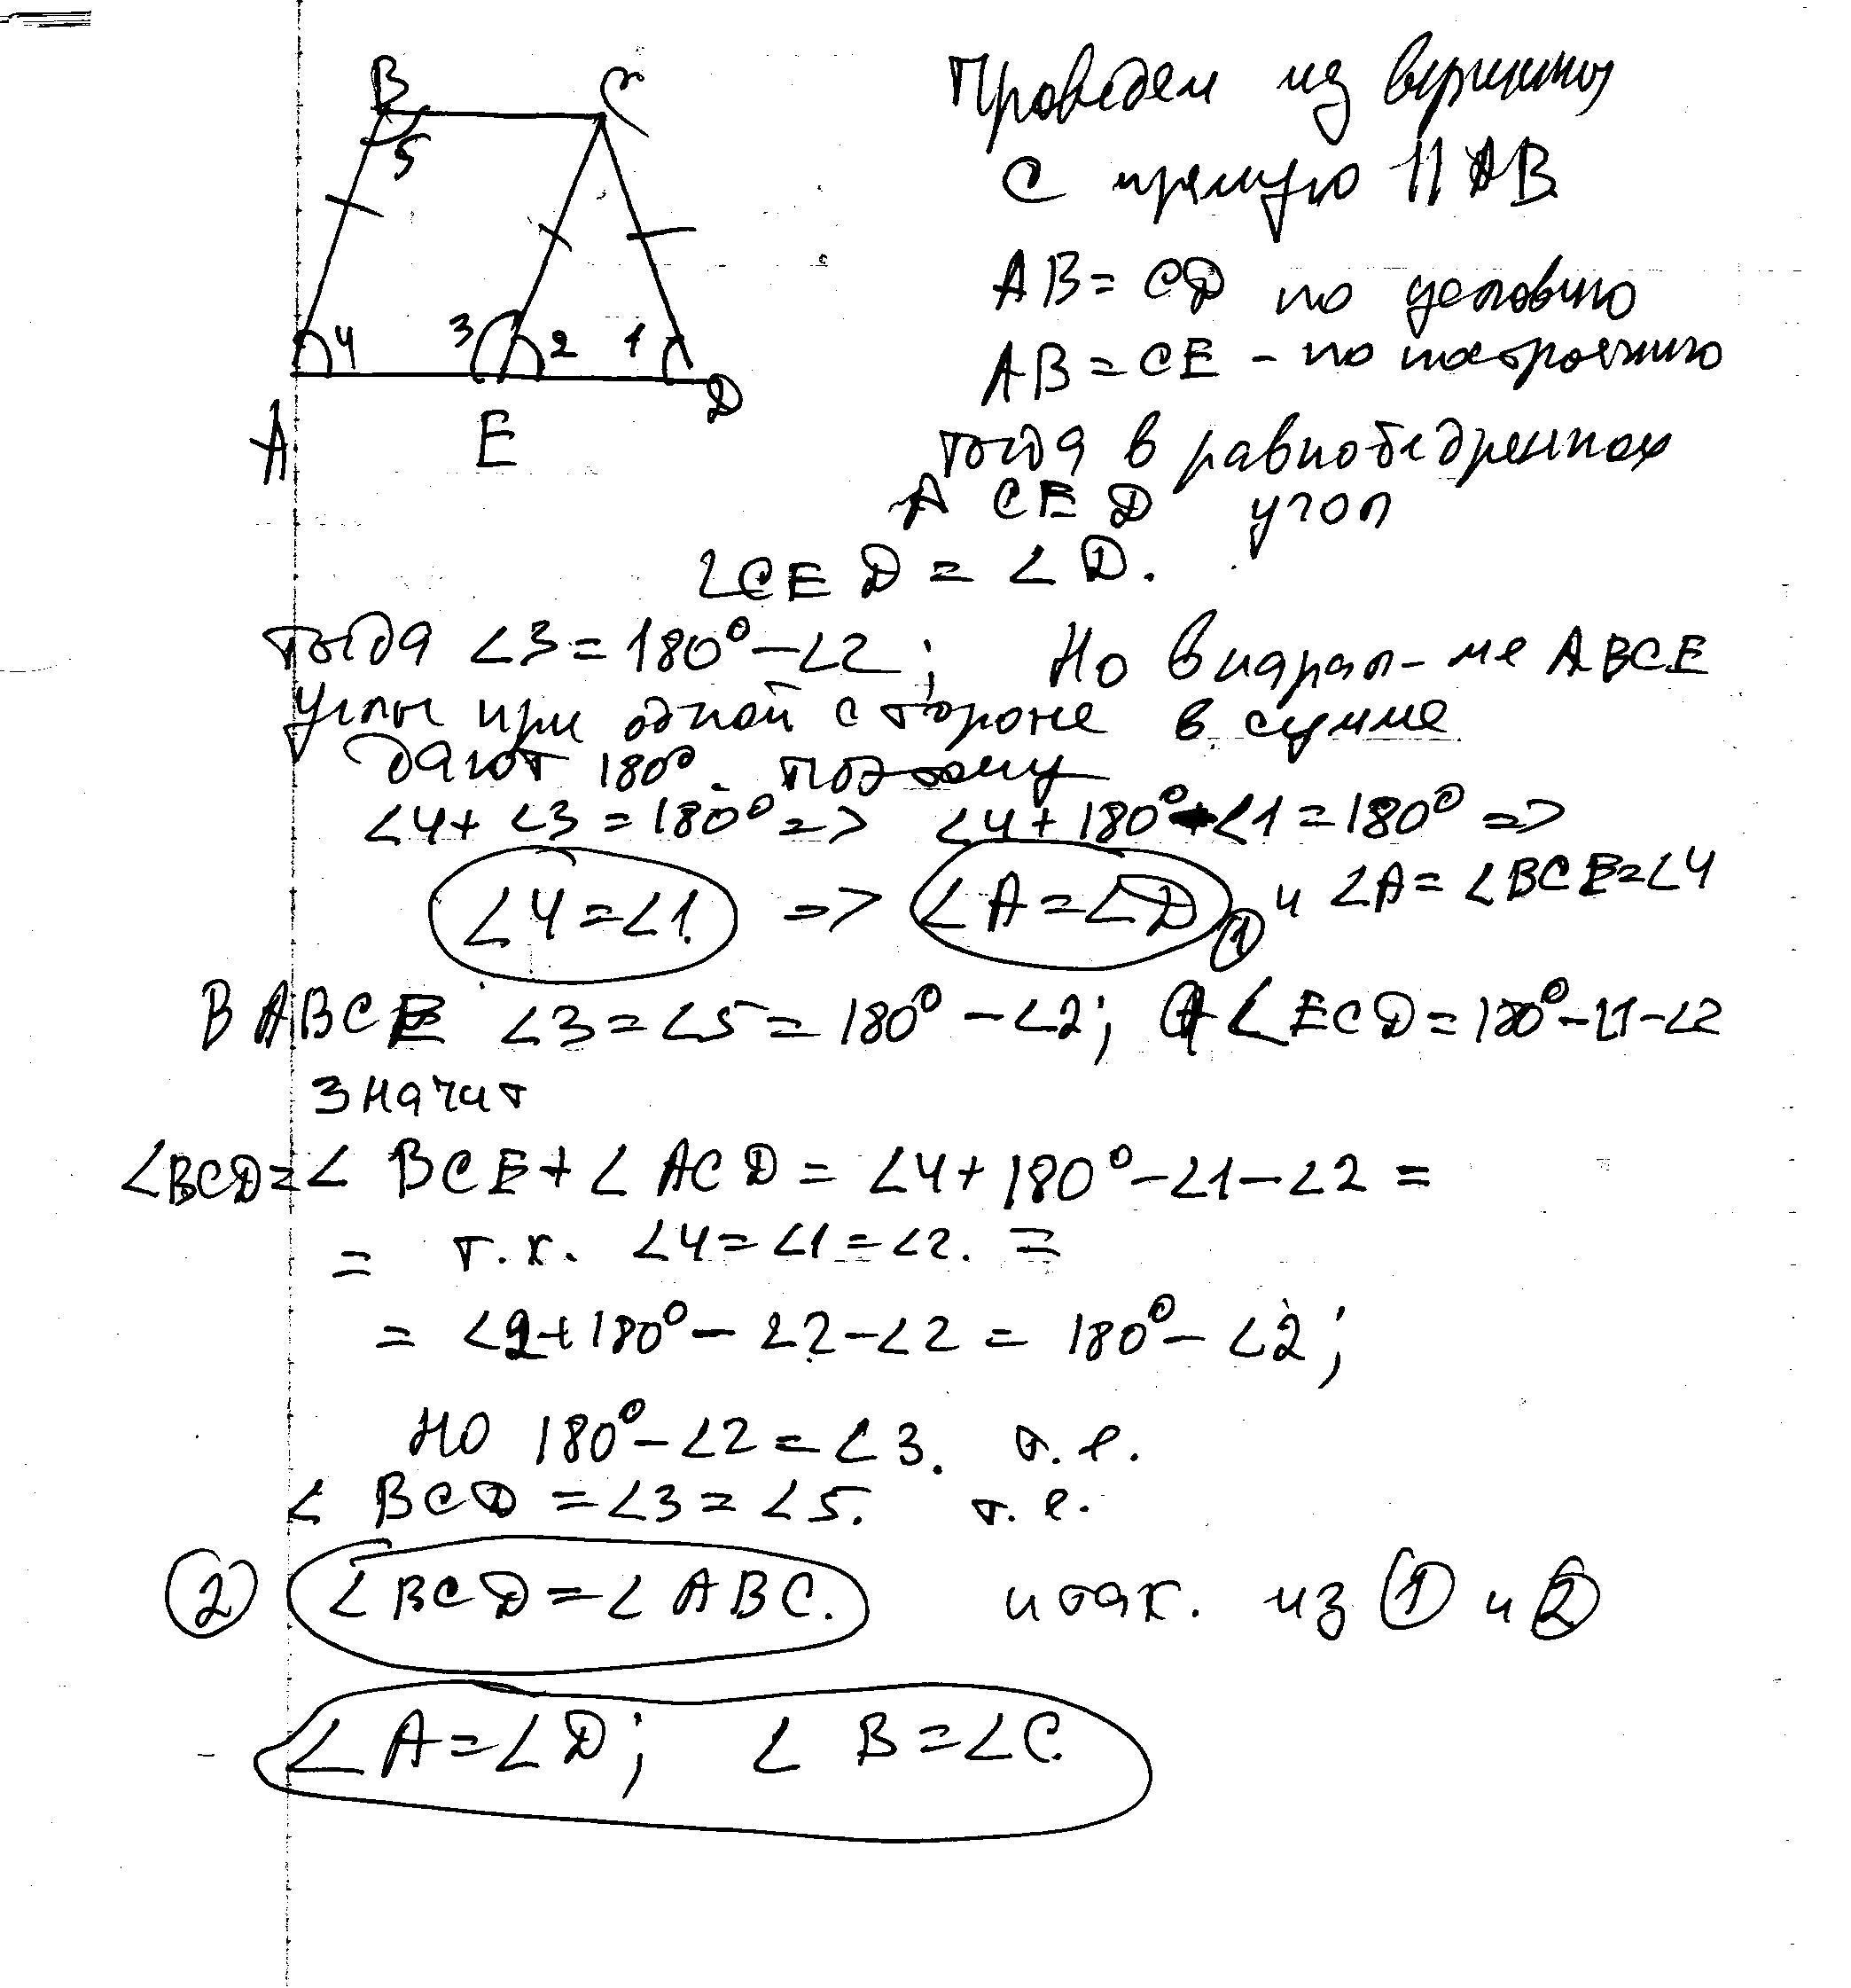 B C
5
4 3 2 1
A E D
Проведем из вершины
С прямую || АВ
АВ = CD по условию
АВ = СЕ - по построению
тогда в равнобедренном
Δ CED угол
∠CED = ∠D.
тогда ∠3 = 180° - ∠2; Но в парал-ме АВСЕ
углы при одной стороне в сумме
дают 180°. поэтому
∠4 + ∠3 = 180° => ∠4 + 180° - ∠1 = 180° =>
∠4 = ∠1. => ∠A = ∠D ① и ∠A = ∠BCE = ∠4
В АВСЕ ∠3 = ∠5 = 180° - ∠2; А ∠ECD = 180° - ∠1 - ∠2
значит
∠BCD = ∠ BCE + ∠ ACD = ∠4 + 180° - ∠1 - ∠2 =
= т.к. ∠4 = ∠1 = ∠2. =
= ∠2 + 180° - ∠2 - ∠2 = 180° - ∠2;
НО 180° - ∠2 = ∠3. т.е.
∠ BCD = ∠3 = ∠5. т.е.
② ∠BCD = ∠ ABC. итак. из ① и ②
∠ A = ∠D; ∠ B = ∠C.